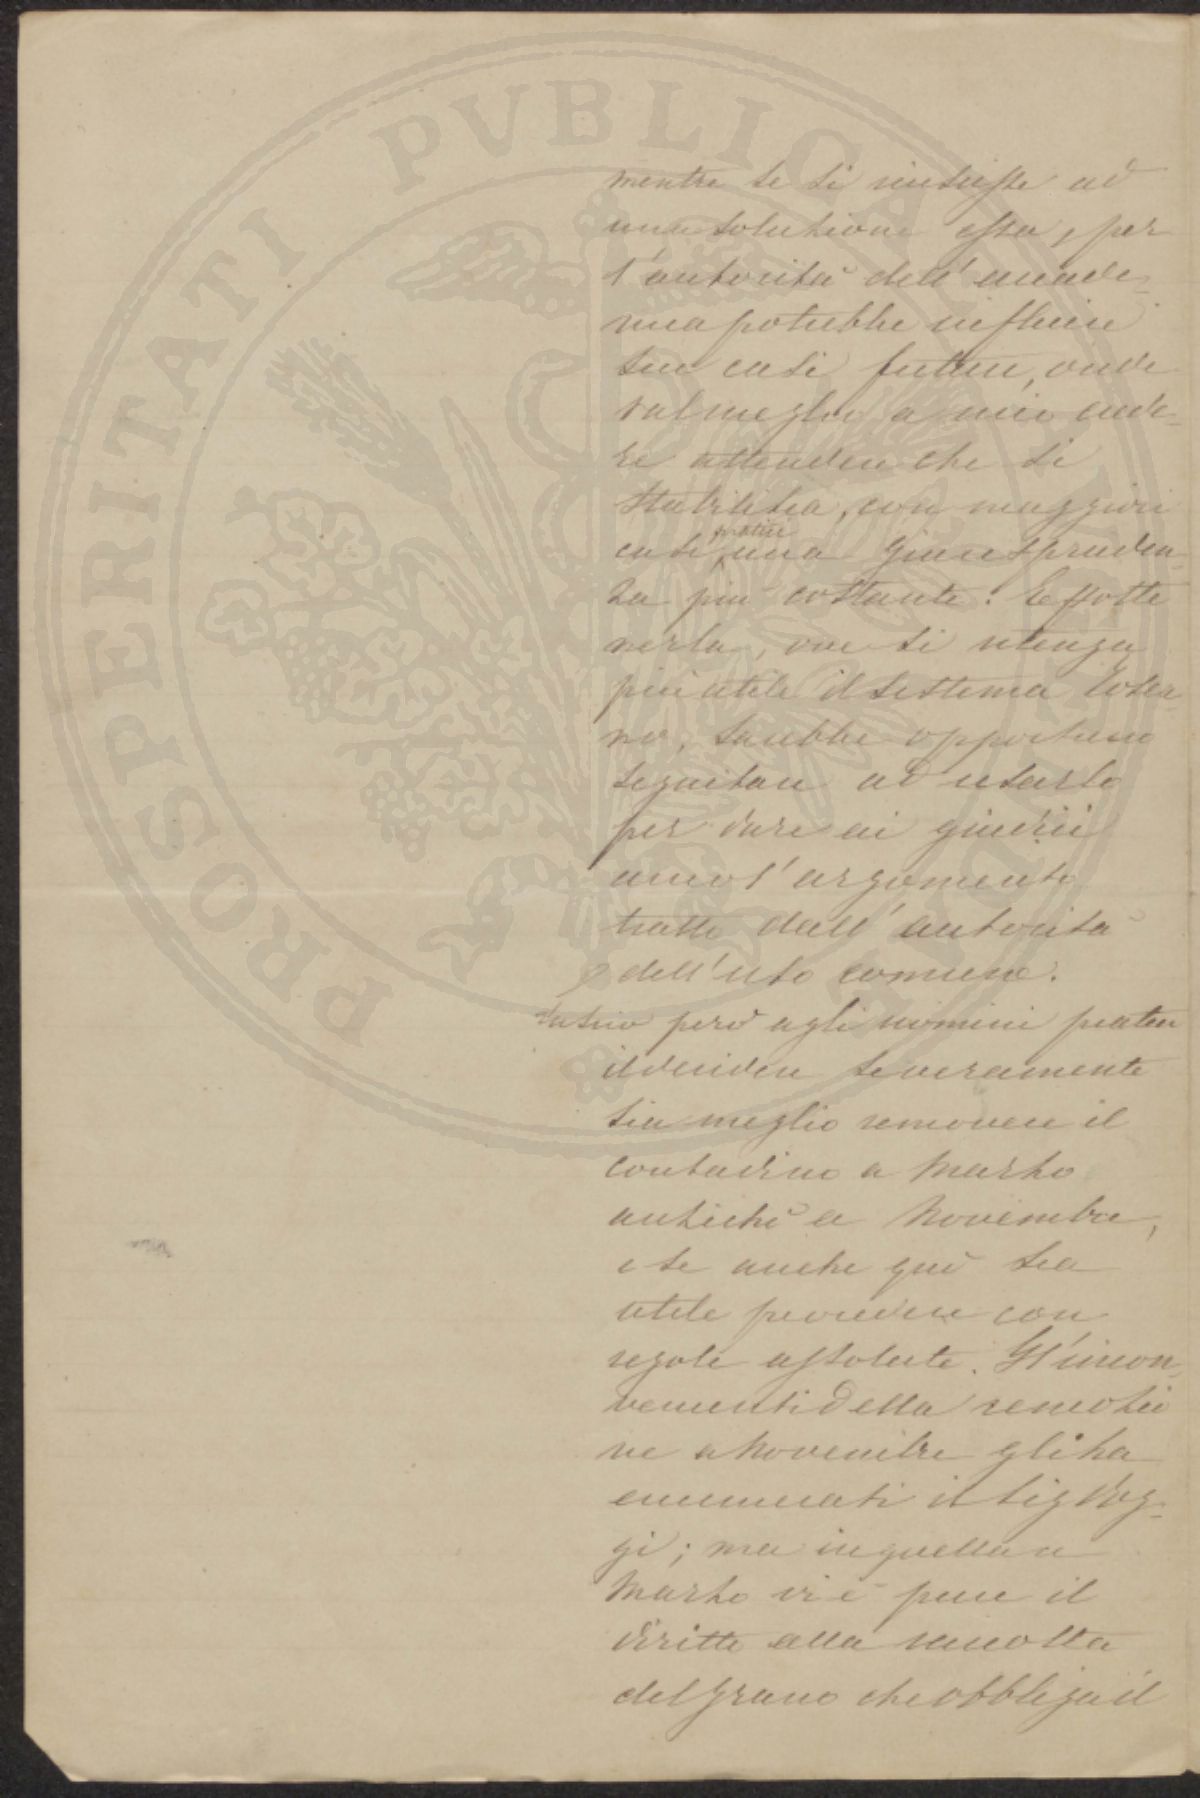 PROSPERITATI PUBLICAE
mentre se si riuscisse ad
una soluzione essa, per
l'autorità dell'accade-
mia potrebbe influire
su casi futuri, onde
val meglio a mio cede-
re attendere che si
stabilisca, con maggiori
casi pratici una giurispruden-
za più costante. E
ove si ritenga
più utile il sistema
no, sarebbe opportuno
seguitare ad usarlo
per dare ai giudici
anco l'argomento
tratto dall'autorità
dell'uso comune.
Lascio però agli uomini pratici
il decidere se veramente
sia meglio remover il
contadino a Marzo
anziché a Novembre,
e se anche quì sia
utile provvedere con
regole assolute. Gl'incon-
venienti della remozio
ne a Novembre gli ha
enumerati il Sig.
gi; ma in quella a
Marzo vi è pure il
diritto alla raccolta
del grano che obbliga il